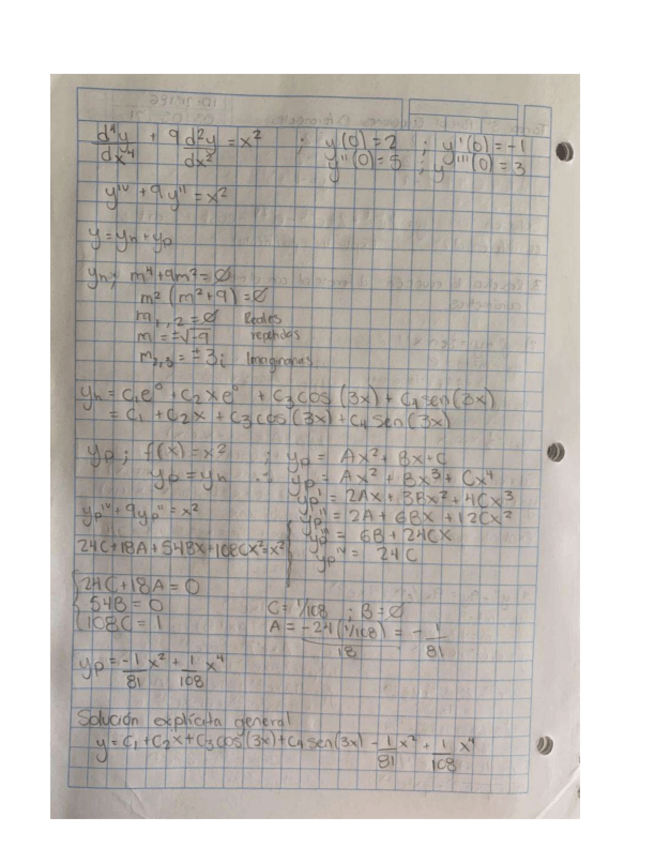 d⁴y/dx⁴ + 9 d²y/dx² = x² ; y(0) = 2 ; y'(0) = -1
y''(0) = 5 ; y'''(0) = 3
yⁱᵛ + 9y'' = x²
y = yh + yp
yh; m⁴ + 9m² = 0
m² (m² + 9) = 0
m₁,₂ = 0 Reales
m = ±√-9 repetidas
m₂,₃ = ± 3i Imaginarias
yh = C₁e⁰ + C₂xe⁰ + C₃cos(3x) + C₄sen(3x)
= C₁ + C₂x + C₃cos(3x) + C₄sen(3x)
yp; f(x) = x² ; yp = Ax² + Bx + C
yp = yh ∴ yp = Ax² + Bx³ + Cx⁴
yp' = 2Ax + 3Bx² + 4Cx³
ypⁱᵛ + 9yp'' = x² yp'' = 2A + 6Bx + 12Cx²
24C + 18A + 54Bx + 108Cx² = x² yp''' = 6B + 24Cx
ypⁱᵛ = 24C
24C + 18A = 0
54B = 0 C = 1/108 ; B = 0
108C = 1 A = -24(1/108)/18 = -1/81
yp = -1/81 x² + 1/108 x⁴
Solución explícita general
y = C₁ + C₂x + C₃cos(3x) + C₄sen(3x) - 1/81 x² + 1/108 x⁴